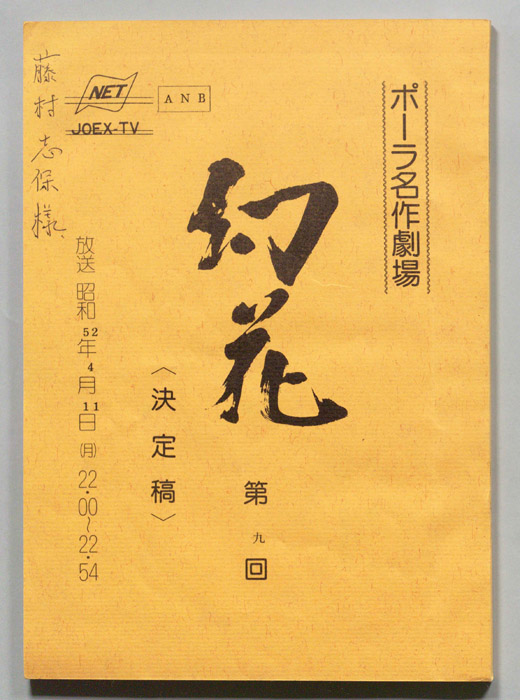 ポーラ名作劇場
幻花
第九回
〈決定稿〉
NET
JOEX-TV
ANB
放送 昭和52年4月11日(月)22・00〜22・54
藤村志保様